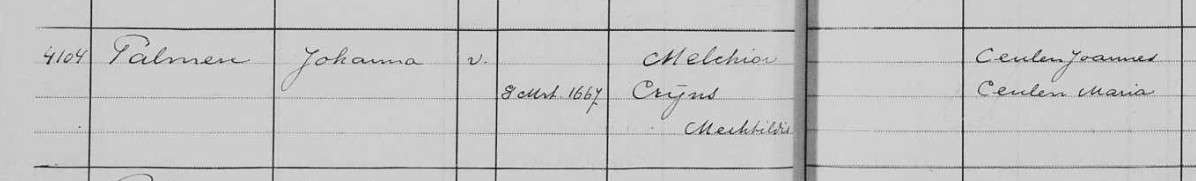 4104 Palmen Johanna v. Melchior Ceulen Joannes
8 Mrt. 1667 Crÿns Ceulen Maria
Mechtildis